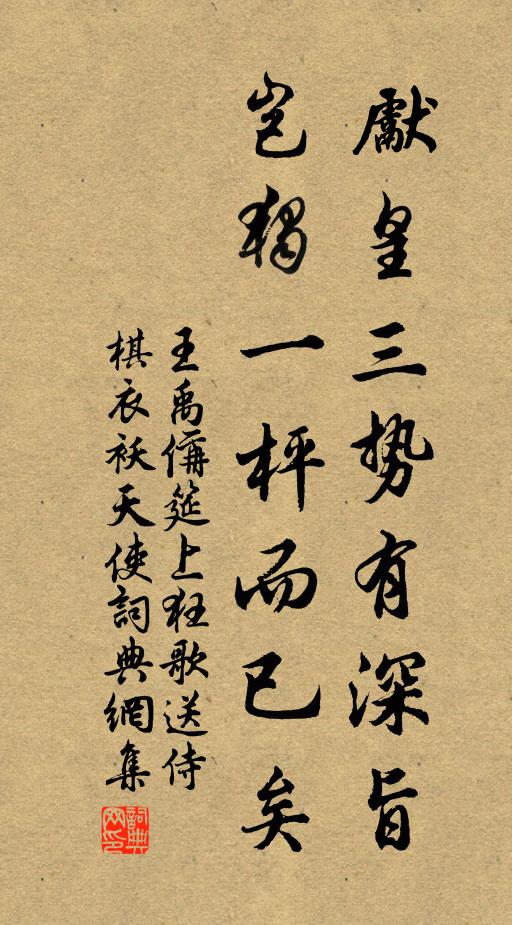 獻皇三势有深旨
岂獨一枰而已矣
王禹偁筵上狂歌送侍
棋衣袄天使詞典網集
詞典网印